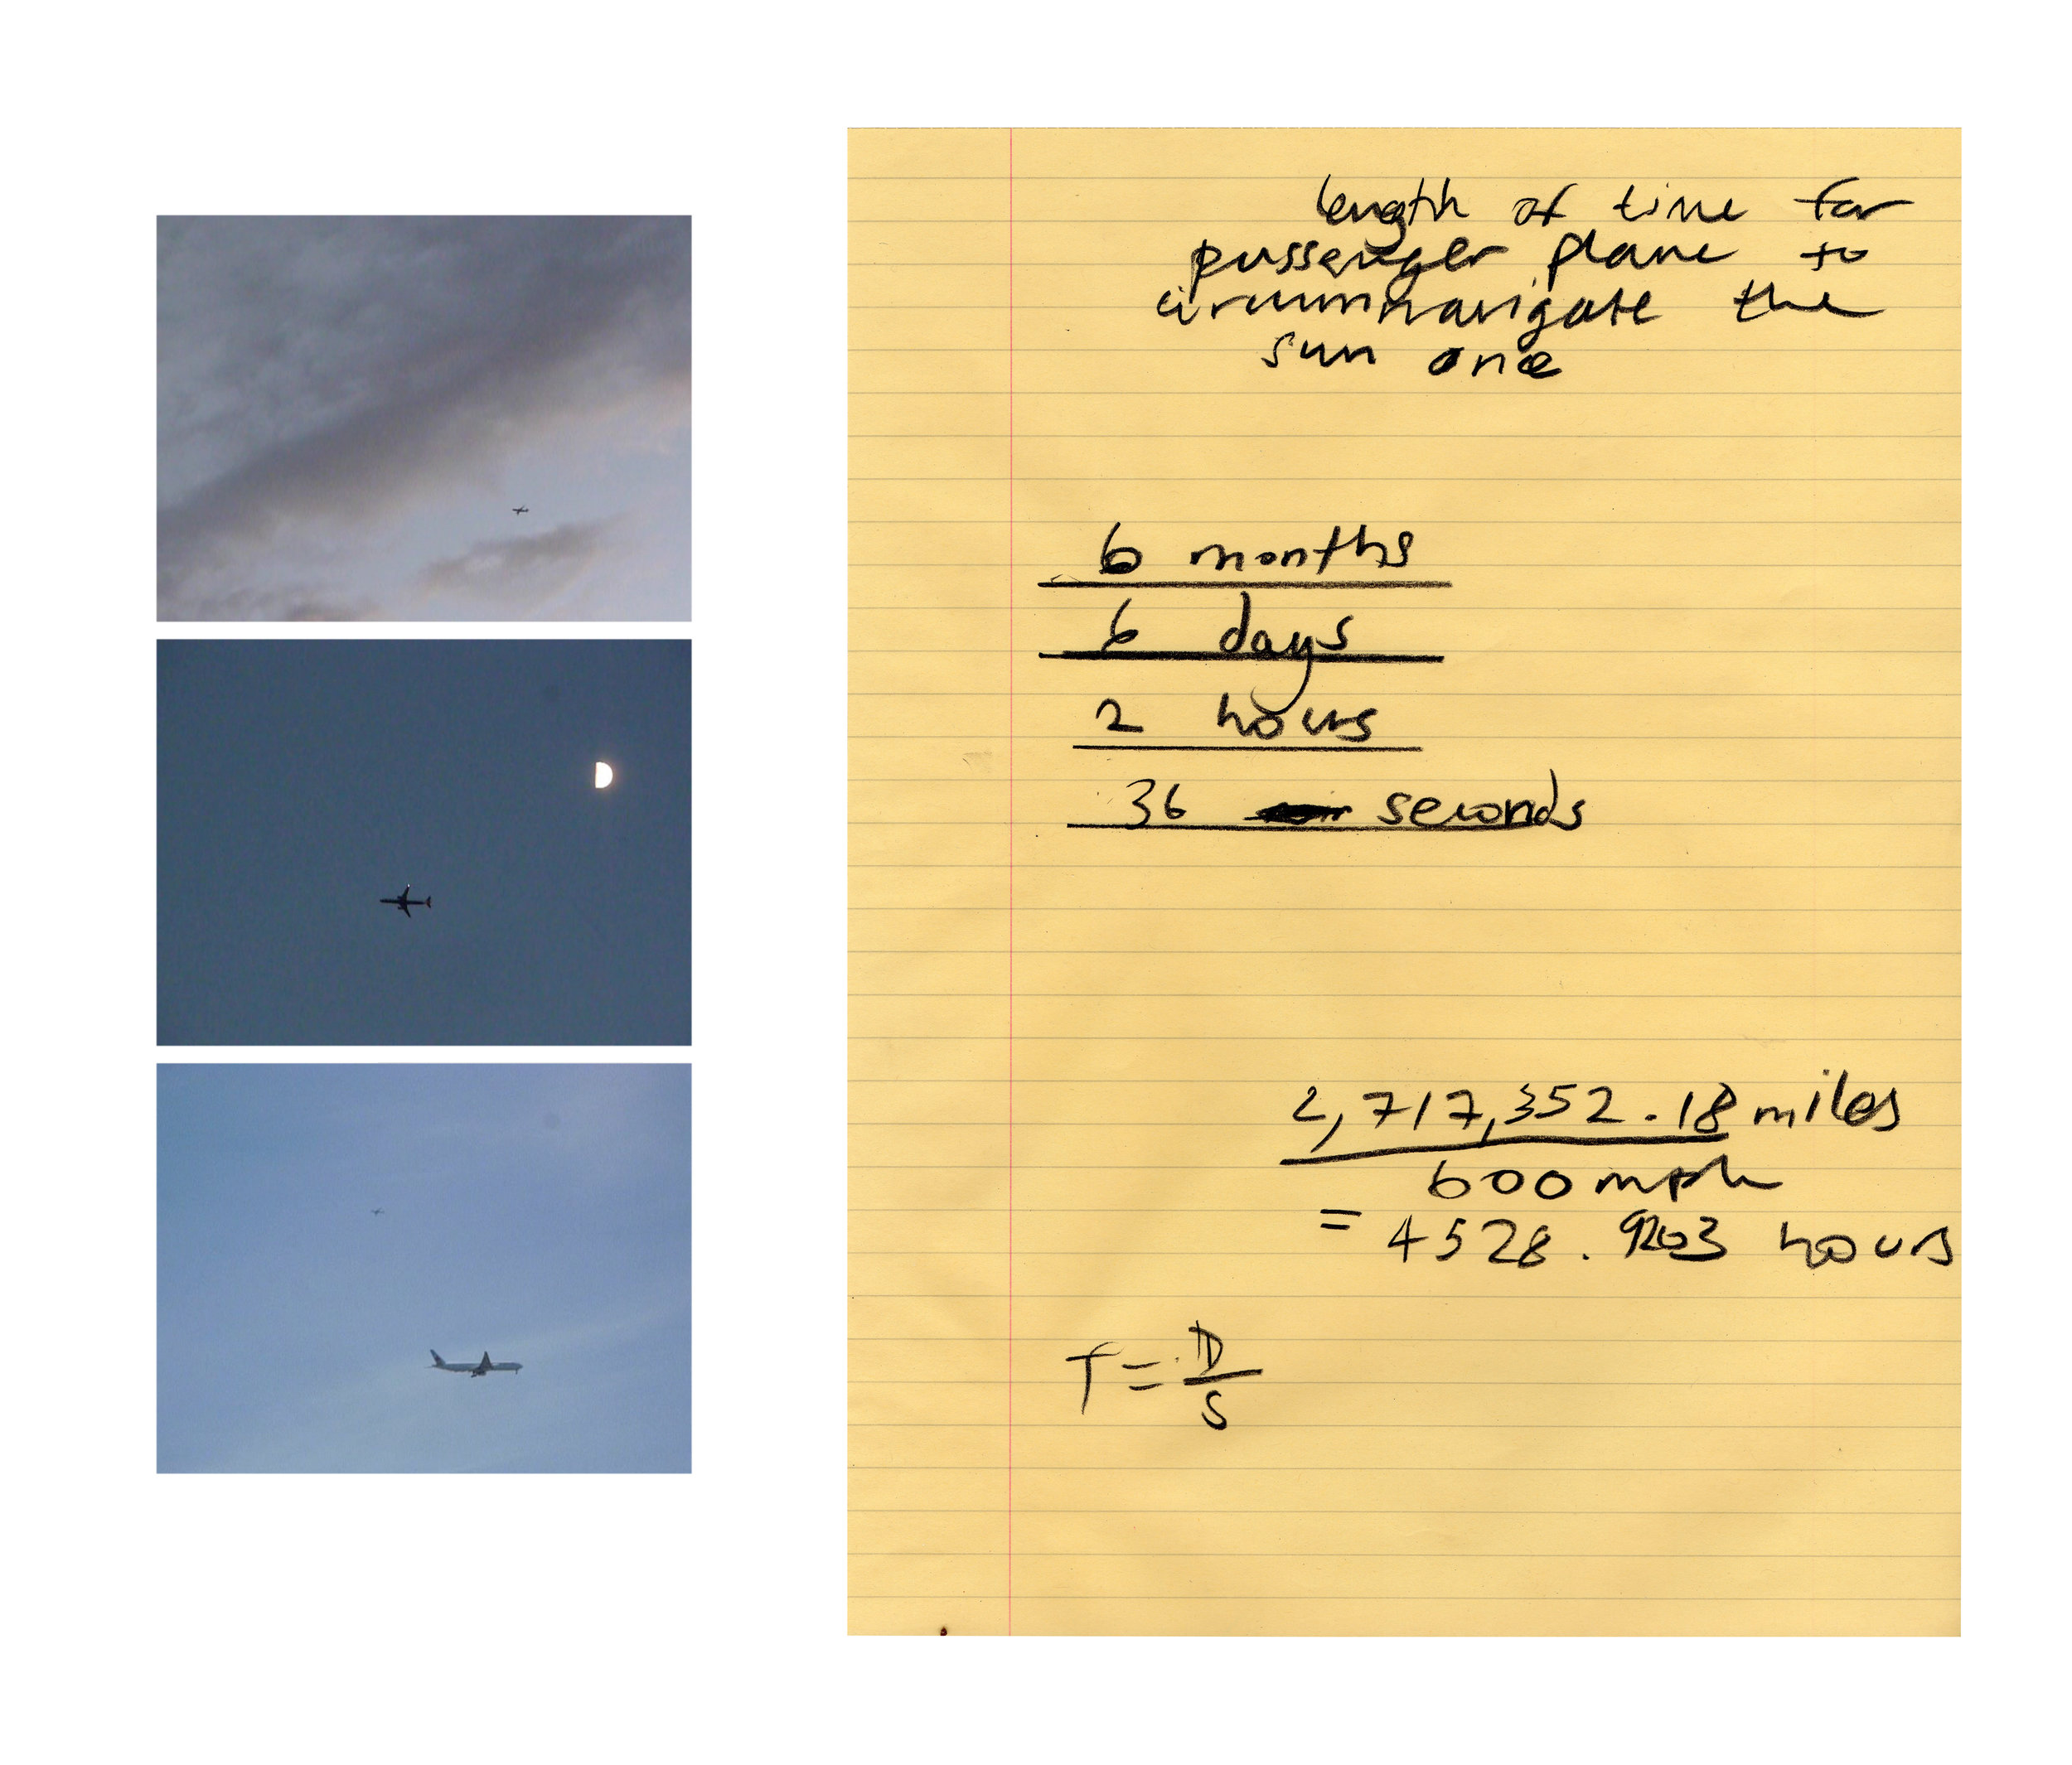 length of time for
passenger plane to
circumnavigate the
sun one
6 months
6 days
2 hours
36 seconds
2,717,352.18 miles
600 mph
= 4528.9203 hours
T = D
S